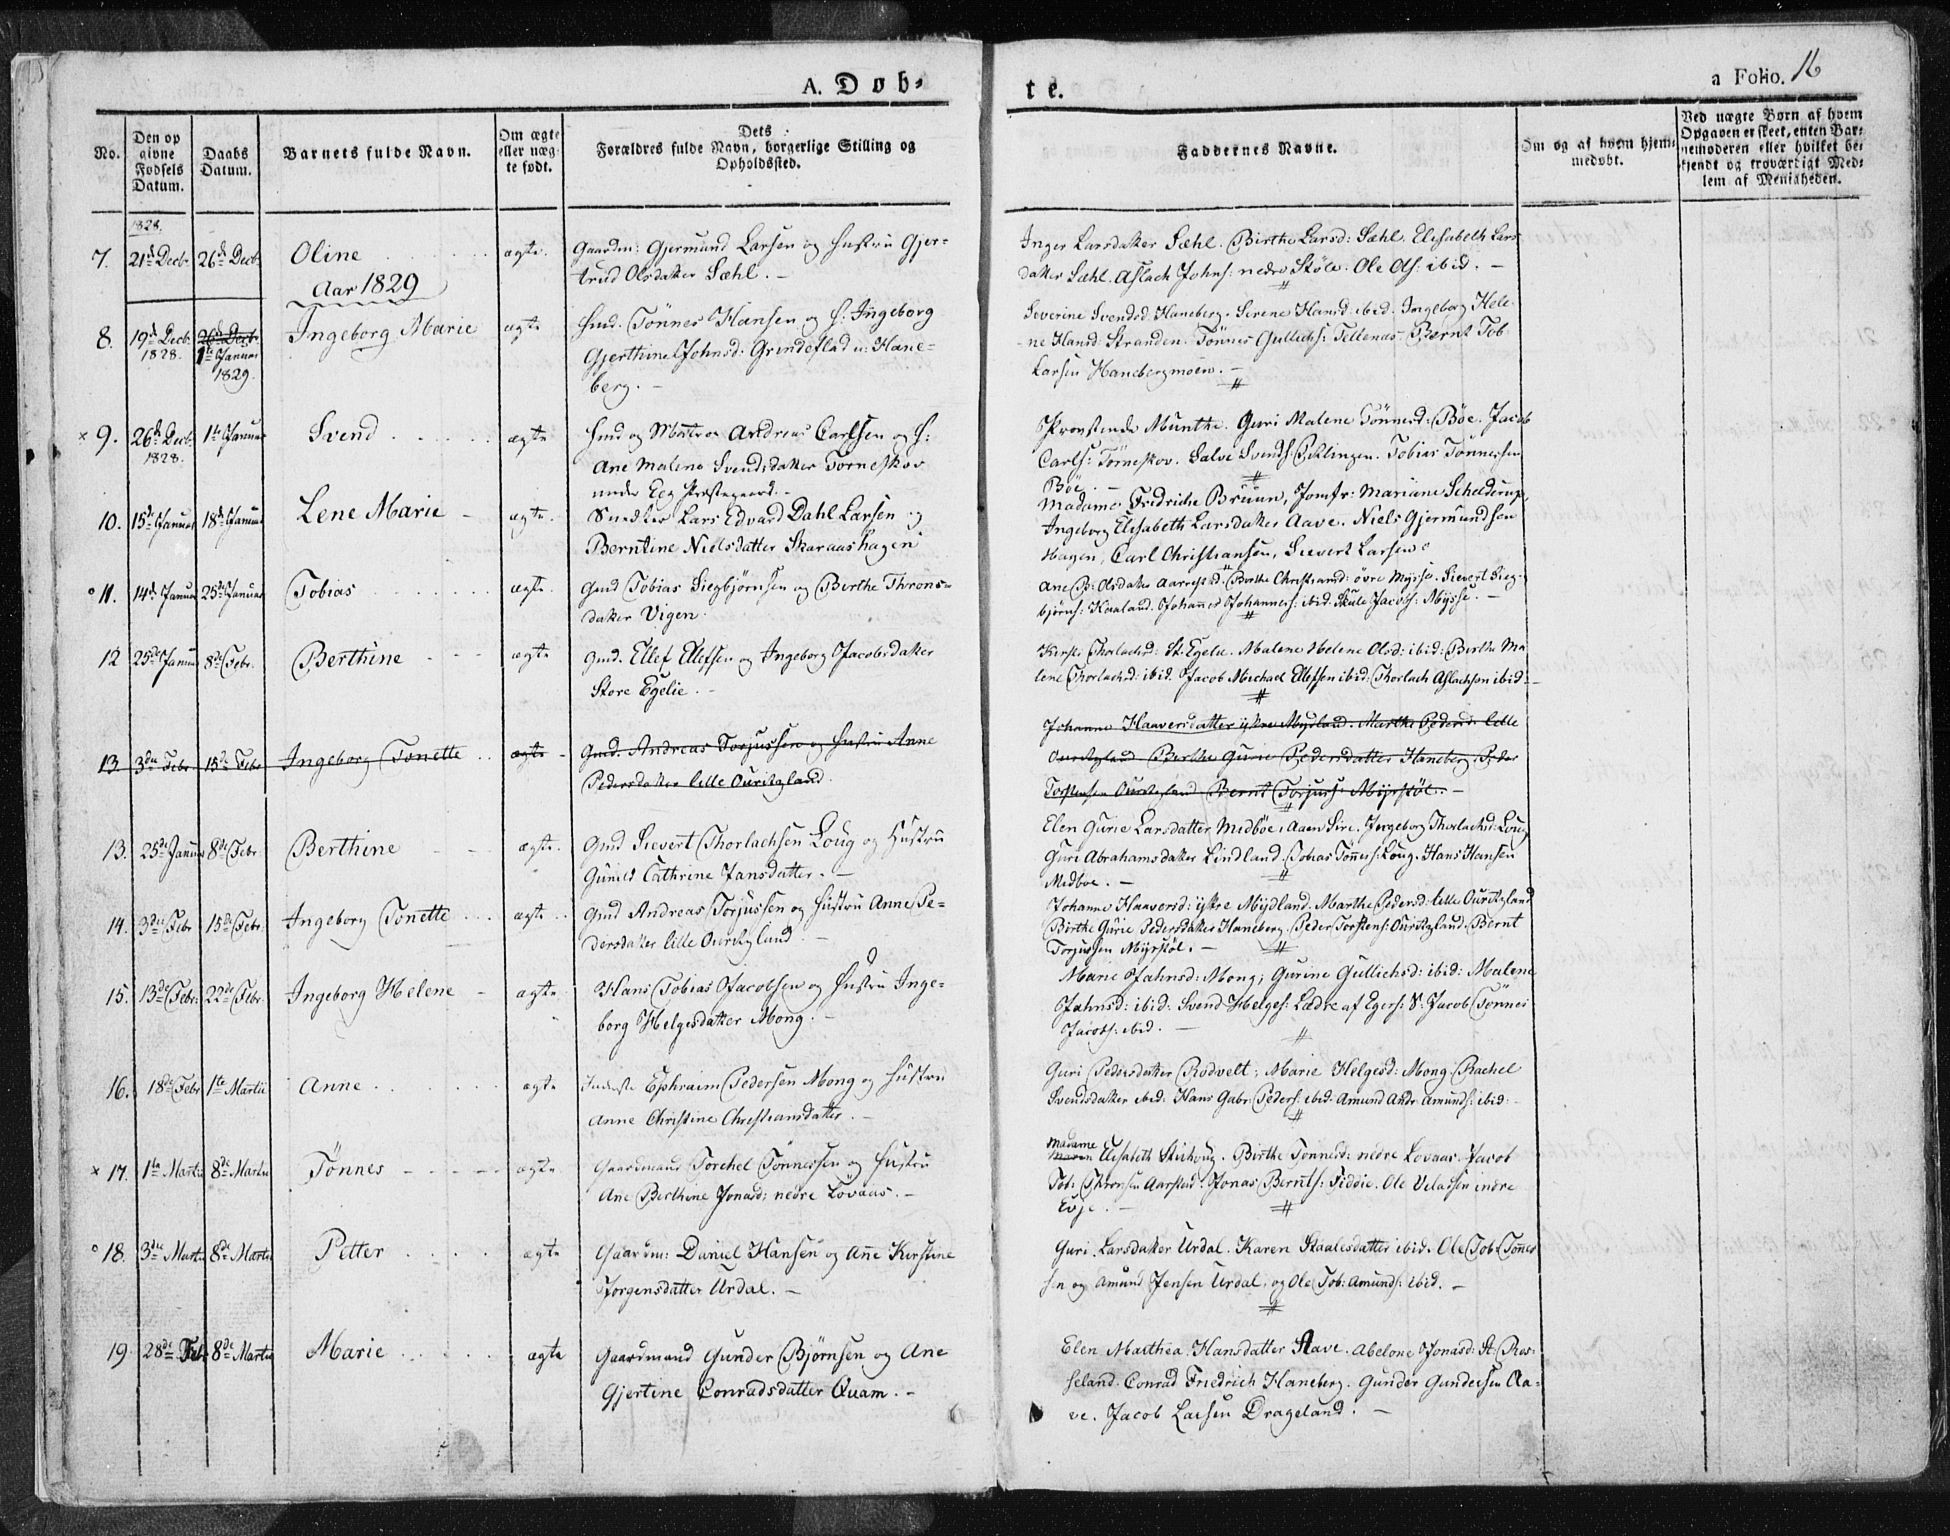 A. Døb-
te.
a Folio. 16
No.
Den op
givne
Fødsels
Datum.
Daabs
Datum.
Barnets fulde Navn.
Om ægte
eller uæg-
te født.
Dets
Forældres fulde Navn, borgerlige Stilling og
Opholdssted.
Faddernes Navne.
Om og af hvem hjem-
medøbt.
Ved uægte Børn af hvem
Opgaven er skeet, enten Bar-
nemoderen eller hvilket be-
kjendt og troværdigt Med-
lem af Menigheden.
1828.
7. 21de Decbr 26de Decbr Oline ægte. Gaardm: Gjermund Larsen og Hustru Gjer-
trud Olsdatter Sæhl. -
Inger Larsdatter Sæhl. Birthe Larsd: Sæhl. Elisabeth Lars
datter Sæhl. Aslach Johns: nedre Støle. Ole Ols: ibid. -
Aar 1829
8. 19de Decb. 1828. 26de Decb. 1te Januar 1829. Ingeborg Marie ægte Gmd. Tönnes Hansen og H: Ingeborg
Gjerthine Johnsd: Grindeflad u: Hane-
berg. -
Severine Svendsd Haneberg. Sirene Hansd ibid. Ingeborg Hele-
ne Hansd Stranden. Tönnes Gullichs: Tellenæs. Bernt Tob:
Larsen Hanebergmoen. -
× 9. 26de Decb. 1828. 1te Januar Svend ægte Gmd og Matros Andreas Carlsen og H:
Ane Malene Svendsdatter Torneskov
under Egg Præstegaard. -
Provstinde Munthe. Guri Malene Tönnesd: Bøe. Jacob
Carls: Törneskov. Salve Svends: Eklingen. Tobias Tönnessen
Bøe. -
10. 15de Januar 18de Januar Lene Marie - ægte. Lars Edvard Dahl Larsen og
Berntine Nielsdatter Skaraashagen
Madame Fredriche Bruun, Jomfr: Mariane Schelderup,
Ingeborg Elisabeth Larsdatter Aave. Niels Gjermundsen
Hagen, Carl Christiansen, Sievert Larsen
° 11. 14de Januar 25de Januar Tobias ægte. Gmd Tobias Siegbjörnsen og Berthe Throns-
datter Vigen.
Ane B: Olsdatter Aarrestad. Berthe Christiansd: övre Mysse. Sievert Sieg-
björns: Kaaland. Johannes Johanness: ibid. Skule Jacobs: Mysse. -
12 25de Januar 8de Febr. Berthine ægte Gmd. Ellef Ellefsen og Ingeborg Jacobsdatter
Store Egelie. -
Kirsti Thorlachsd: St: Egelie. Malene Helene Olsd: ibid: Birthe Ma
lene Thorlachsd: ibid. Jacob Michael Ellefsen ibid: Thorlach Aslachsen ibid. -
13 3die Febr. 15de Febr Ingeborg Tonette ægte - Gmd. Andreas Torjussen og Hustru Anne
Pedersdatter lille Ouritzland
Johanne Haaversdatter ytre Mydland. Marthe Pedersd: lille
Ouritzland Berthe Gurie Pedersdatter Haneberg. Peder
Torstensen Ouritzland Bernt Torjuss: Myrstöl. -
13. 25de Januar 8de Febr Berthine ægte. Gmd Sievert Thorlachsen Loug og Hustru
Gunild Cathrine Jansdatter. -
Elen Gurie Larsdatter Midbøe. Aaen Sire. Ingeborg Thorlachsd: Loug
Guri Abrahamsdatter Lindland. Tobias Tönnes: Loug. Hans Hansen
Midboe. -
14. 3die Febr 15de Febr. Ingeborg Tonette ægte Gmd Andreas Torjussen og Hustru Anne Pe-
dersdatter lille Ouritzland. -
Johanne Haaversd: ytre Mydland. Marthe Pedersd: lille Ouritzland
Birthe Gurie Pedersdatter Haneberg. Peder Torstens: Ouritzland. Bernt
Torjussen Myrstöl. -
15. 13de Febr. 22de Febr. Ingeborg Helene - ægte. Hans Tobias Jacobsen og Hustru Inge-
borg Helgesdatter Mong. -
Marie Jahnsd: Mong; Gurine Gullichsd: ibid: Malene
Jahnsd: ibid: Svend Helges: Lædre af Egers: S: Jacob Tönnes
Jacobs: ibid. -
16. 18de Febr 1te Martii Anne ægte Inderste Ephraim Pedersen Mong og Hustru
Anne Christine Christiansdatter. -
Guri Pedersdatter Rodvelt; Marie Helgesd: Mong. Rachel
Svendsdatter ibid: Hans Gabr: Peders: ibid. Amund Andr: Amunds: ibid: -
× 17. 1te Martii 8de Martii Tönnes ægte Gaardmand Torchel Tönnessen og Hustru
Ane Berthine Jonasd: nedre Lovaas. -
Madame
Maren Elisabeth Stirhoug. Birthe Tönnesd: nedre Lovaas. Jacob
Tob: Thronsen Aarstad. Jonas Bernts: Feddie. Ole Velassen indre
Evje. -
° 18. 3die Martii 8de Martii Petter ægte Gaardm: Daniel Hansen og Ane Kirstine
Jorgensdatter Urdal. -
Guri Larsdatter Urdal. Karen Staalesdatter ibid. Ole Tob: Tönnes
sen og Amund Jensen Urdal, og Ole Tob: Amunds: ibid. -
19. 28de Feb. 8de Martii Marie ægte Gaardmand Gunder Björnsen og Ane
Gjertine Conradsdatter Quam. -
Elen Marthea Hansdatter Aave. Abelone Jonasd: St: Ros-
seland. Conrad Friedrich Haneberg. Gunder Gundersen Aa-
ve. Jacob Larsen Drageland. -